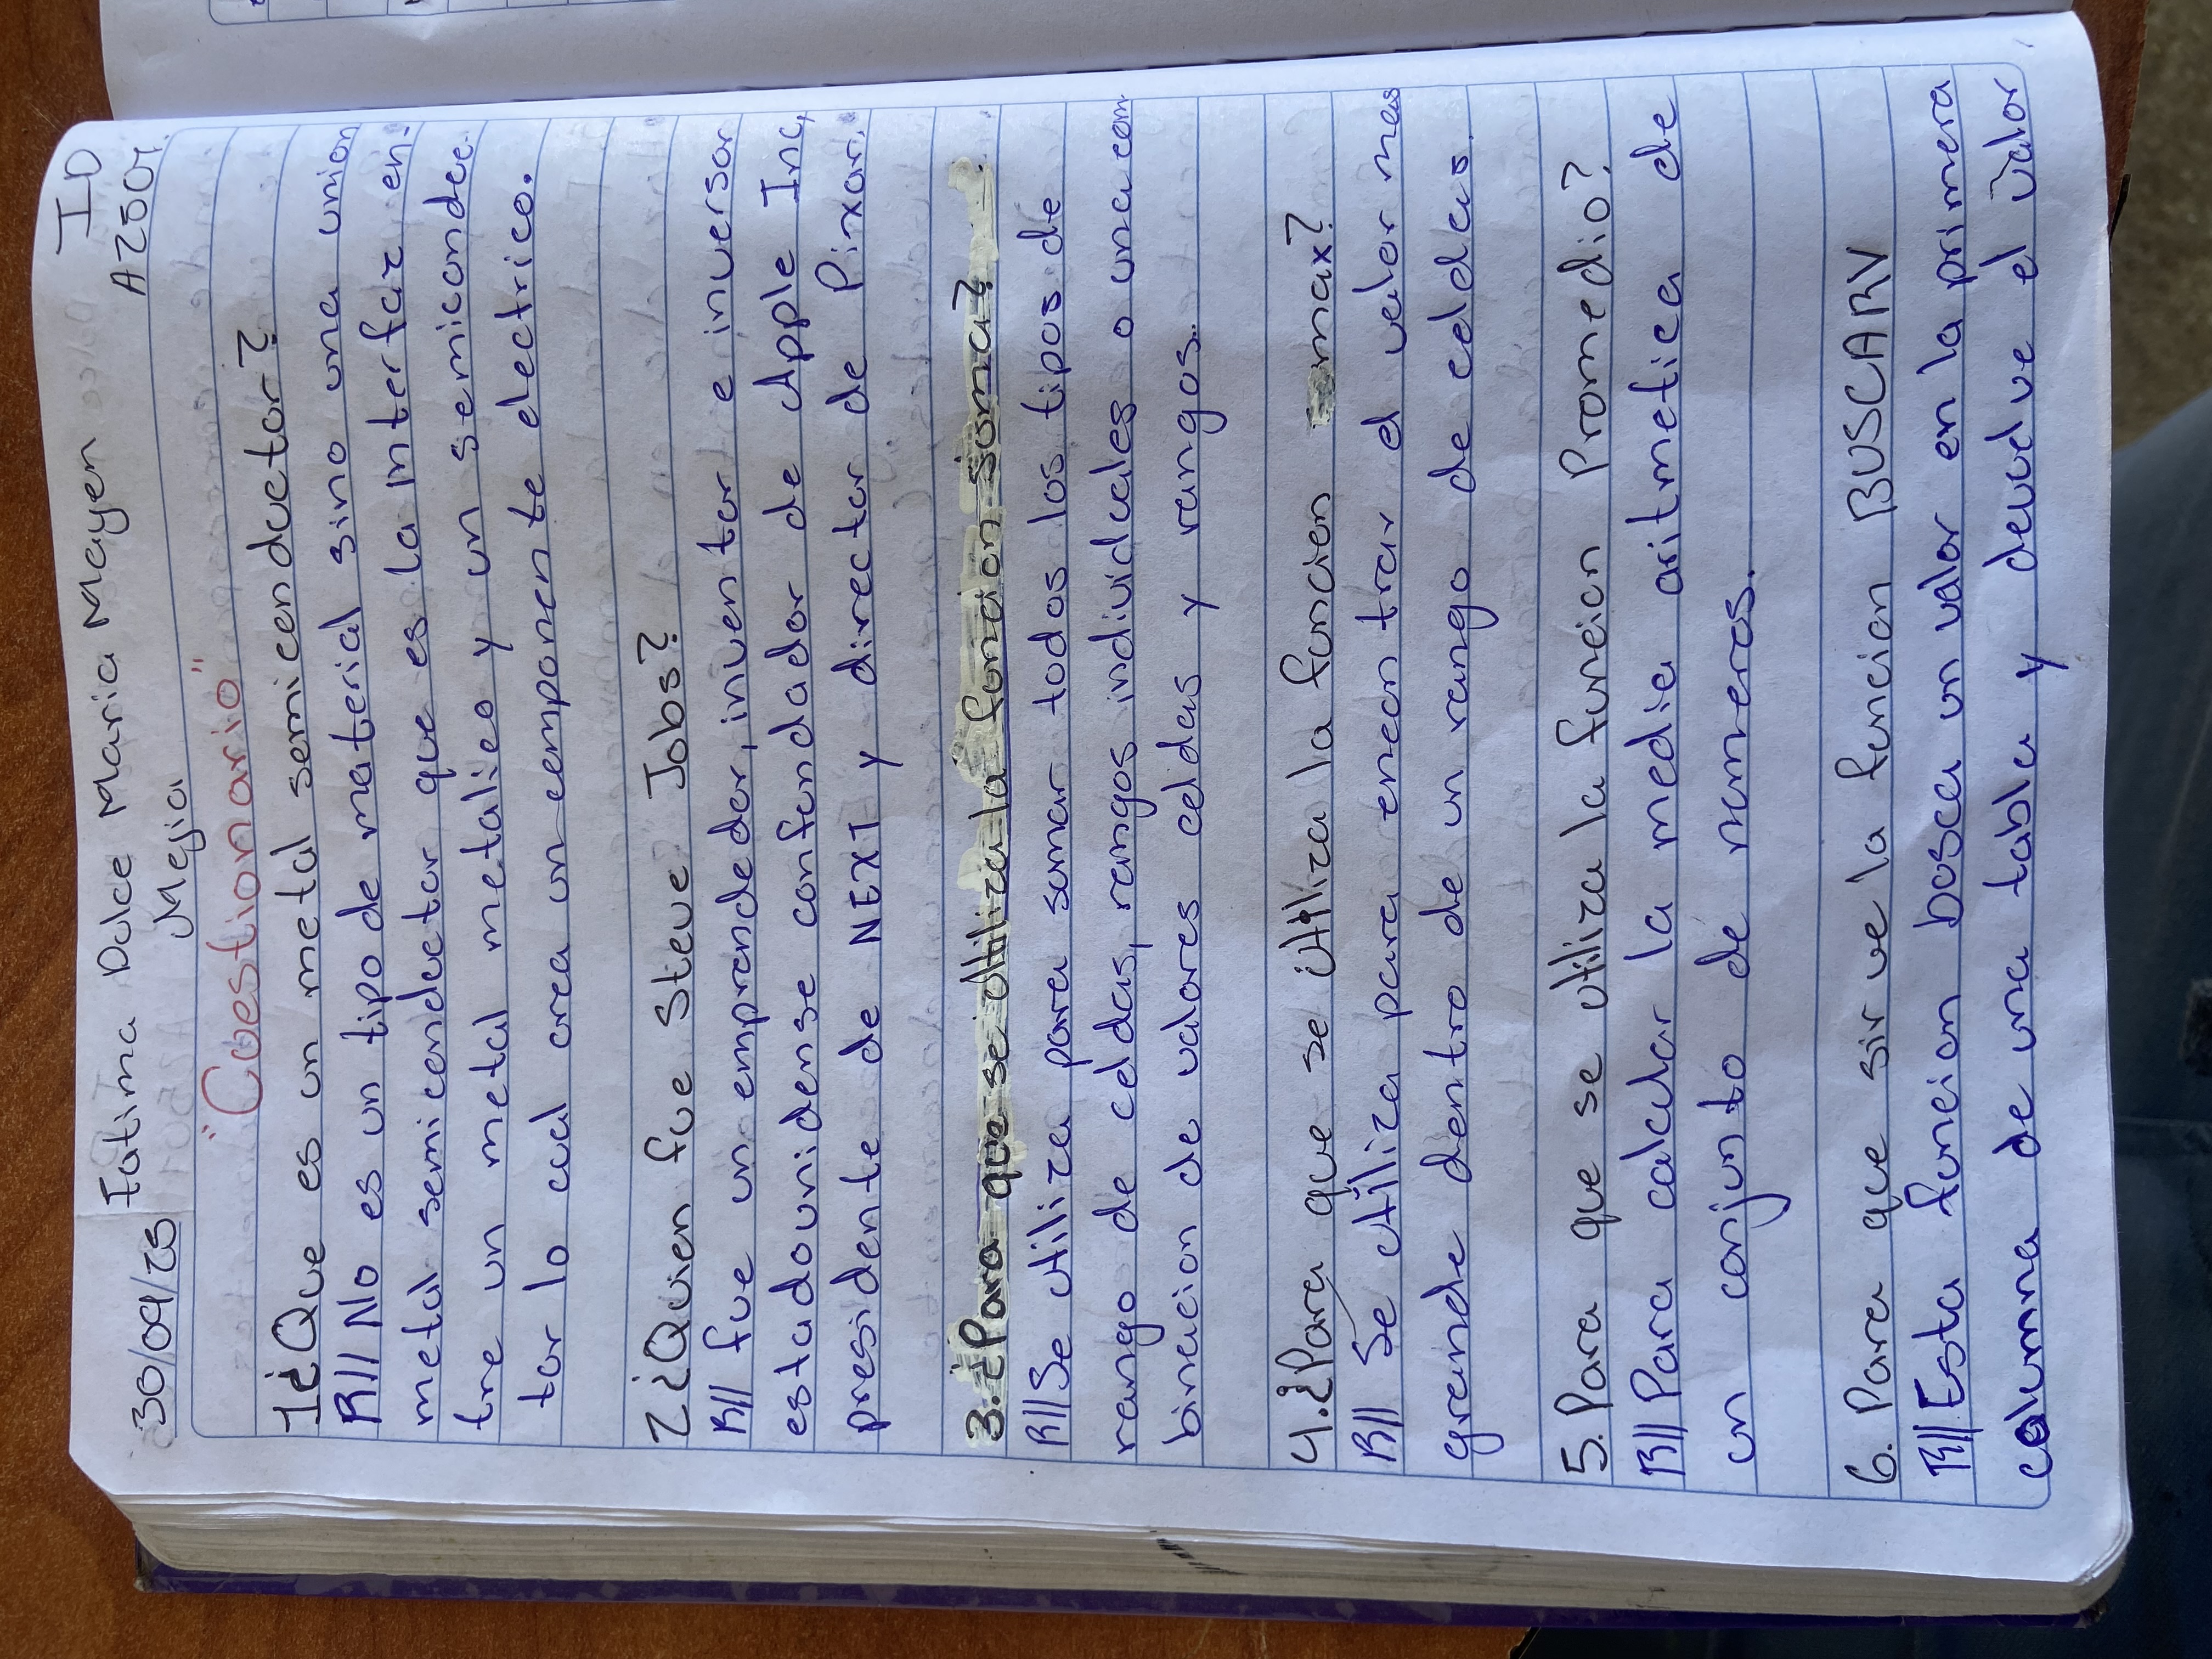 30/09/23 Fatima Dulce Maria Mayen ID
Mejia AZ50r
"Cuestionario"
1¿Que es un metal semiconductor?
R// No es un tipo de material sino una union
metal semiconductor que es la interfaz en-
tre un metal metalico y un semiconduc-
tor lo cual crea un componente electrico.
2¿Quien fue Steve Jobs?
R// fue un emprendedor, inventor e inversor
estadounidense confundador de Apple Inc,
presidente de NEXT y director de Pixar.
3.¿Para que se utiliza la funcion suma?
R// Se utiliza para sumar todos los tipos de
rango de celdas, rangos individuales o una com
binacion de valores celdas y rangos.
4.¿Para que se utiliza la funcion max?
R// Se utiliza para encontrar el valor mas
grande dentro de un rango de celdas.
5. Para que se utiliza la funcion Promedio?
R// Para calcular la media aritmetica de
un conjunto de numeros.
6. Para que sirve la funcion BUSCARV
R// Esta funcion busca un valor en la primera
columna de una tabla y devuelve el valor